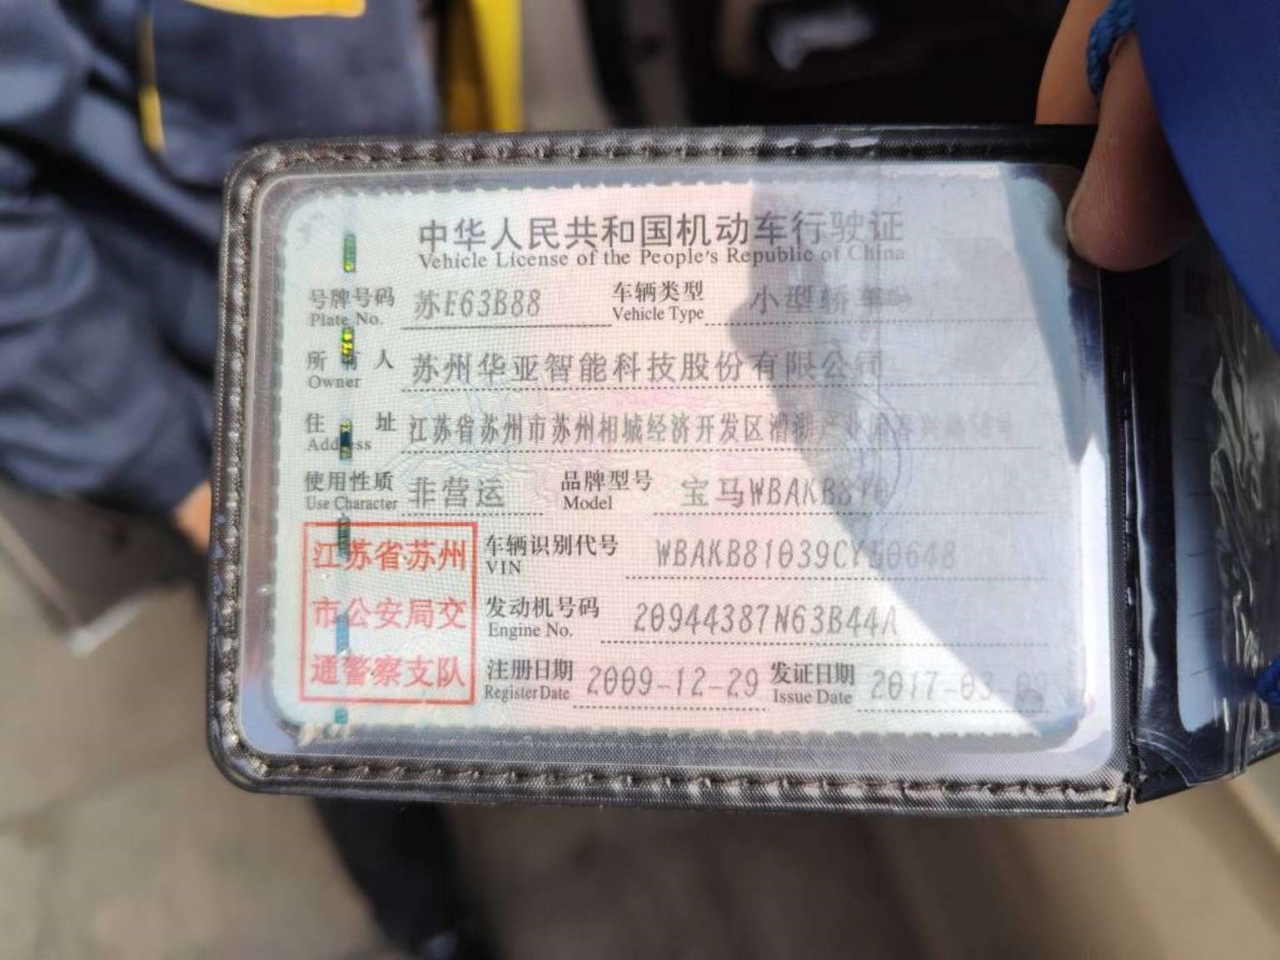 中华人民共和国机动车行驶证
Vehicle License of the People's Republic of China
号牌号码 苏E63B88 车辆类型 小型轿车
Plate No. Vehicle Type
所有人 苏州华亚智能科技股份有限公司
Owner
住址 江苏省苏州市苏州相城经济开发区漕湖产业园
Address
使用性质 非营运 品牌型号 宝马WBAKB81
Use Character Model
江苏省苏州 车辆识别代号 WBAKB81039CY50648
VIN
市公安局交 发动机号码 20944387N63B44A
Engine No.
通警察支队 注册日期 2009-12-29 发证日期 2017-03-09
Register Date Issue Date